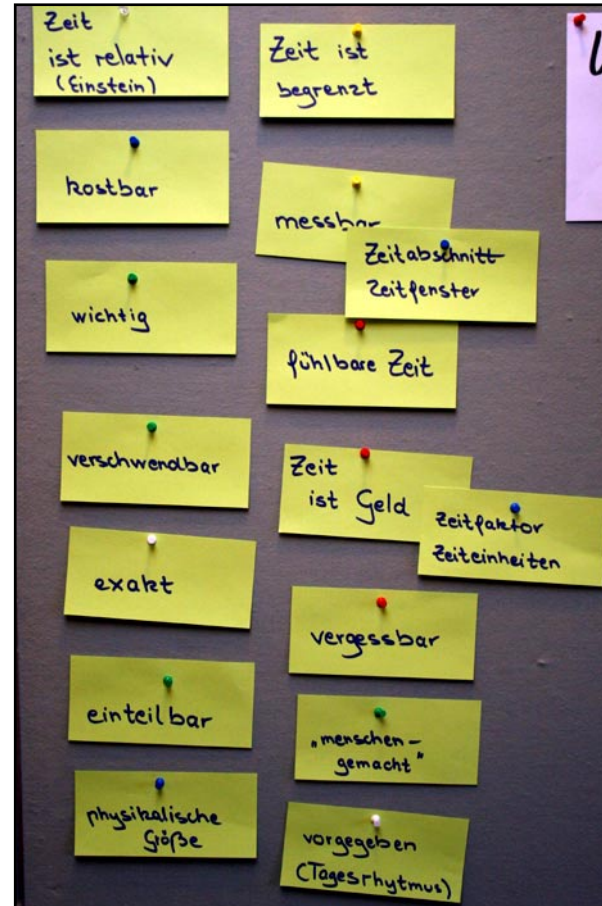 Zeit
ist relativ
(Einstein)
kostbar
wichtig
verschwendbar
exakt
einteilbar
physikalische
Größe
Zeit ist
begrenzt
messbar
Zeitabschnitt
Zeitfenster
fühlbare Zeit
Zeit
ist Geld
Zeitfaktor
Zeiteinheiten
vergessbar
„menschen-
gemacht"
vorgegeben
(Tagesrhytmus)